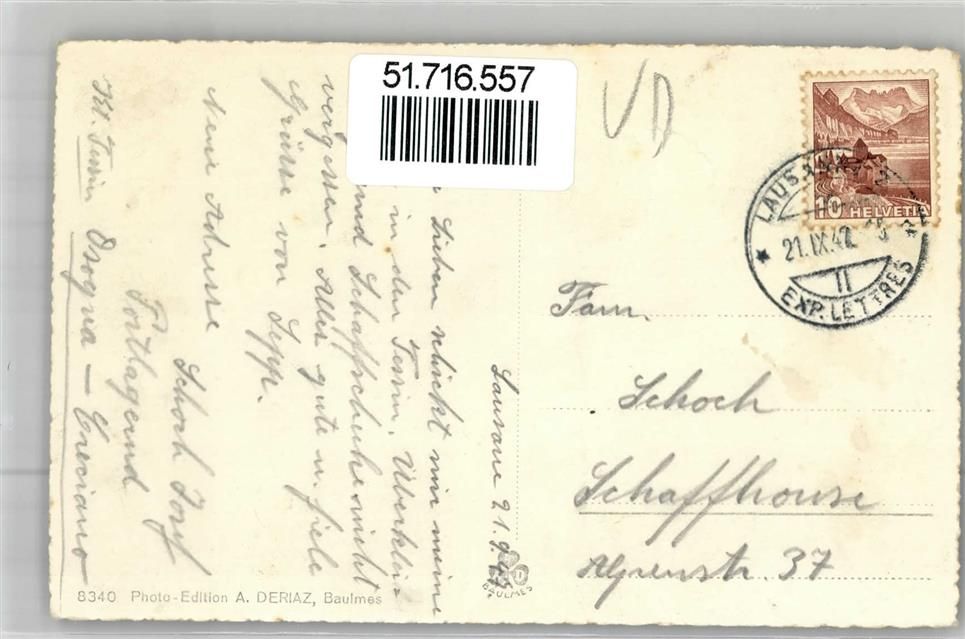 51.716.557
VD
10 HELVETIA
LAUSANNE
21.IX.42
II
EXP. LETTRES
Lausanne 21.9.42.
Lieben schickt mir meine
in den Tessin. Überkleider
und Schaffschuhe nicht
vergessen. Alles gute u. fiele
Grüsse von Sepp.
Neue Adresse
Schoch Josef
Postlagernd
Kt. Tessin Osogna — Cresciano
Fam.
Schoch
Schaffhouse
Alpenstr. 37
8340 Photo-Edition A. DERIAZ, Baulmes
BAULMES